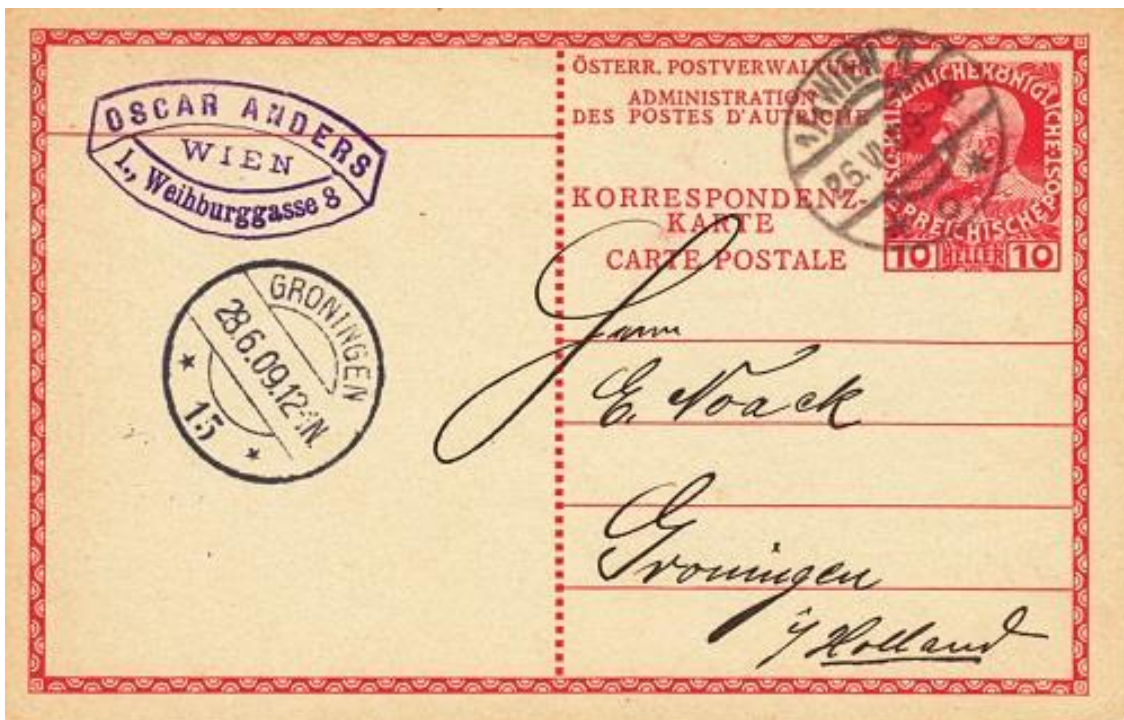 OSCAR ANDERS
WIEN
I., Weihburggasse 8
GRONINGEN
28.6.09.12-1N.
15
ÖSTERR. POSTVERWALTUNG
ADMINISTRATION
DES POSTES D'AUTRICHE
KORRESPONDENZ-
KARTE
CARTE POSTALE
WIEN
26.VI
10 HELLER 10
Herrn
E. Noack
Groningen
i/Holland